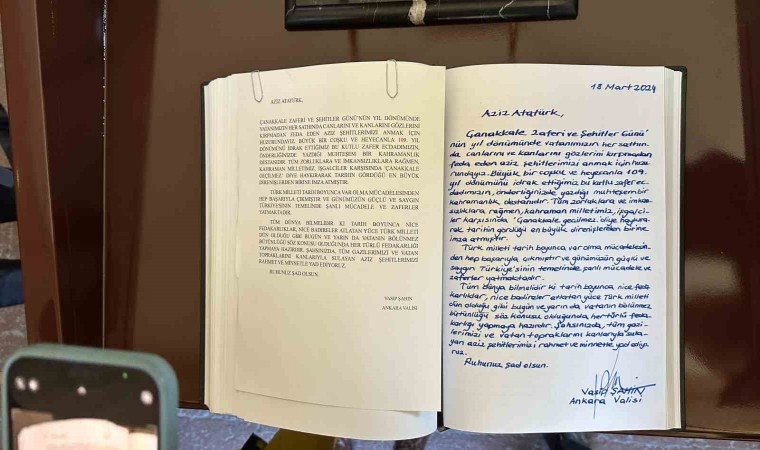 AZİZ ATATÜRK,
ÇANAKKALE ZAFERİ VE ŞEHİTLER GÜNÜ'NÜN YIL DÖNÜMÜNDE
VATANIMIZIN HER SATHINDA CANLARINI VE KANLARINI GÖZLERİNİ
KIRPMADAN FEDA EDEN AZİZ ŞEHİTLERİMİZİ ANMAK İÇİN
HUZURUNDAYIZ. BÜYÜK BİR COŞKU VE HEYECANLA 109. YIL
DÖNÜMÜNÜ İDRAK ETTİĞİMİZ BU KUTLU ZAFER ECDADIMIZIN,
ÖNDERLİĞİNİZDE YAZDIĞI MUHTEŞEM BİR KAHRAMANLIK
DESTANIDIR. TÜM ZORLUKLARA VE İMKANSIZLIKLARA RAĞMEN,
KAHRAMAN MİLLETİMİZ, İŞGALCİLER KARŞISINDA 'ÇANAKKALE
GEÇİLMEZ' DİYE HAYKIRARAK TARİHİN GÖRDÜĞÜ EN BÜYÜK
DİRENİŞLERDEN BİRİNE İMZA ATMIŞTIR.
TÜRK MİLLETİ TARİH BOYUNCA VAR OLMA MÜCADELESİNDEN
HEP BAŞARIYLA ÇIKMIŞTIR VE GÜNÜMÜZÜN GÜÇLÜ VE SAYGIN
TÜRKİYE'SİNİN TEMELİNDE ŞANLI MÜCADELE VE ZAFERLER
YATMAKTADIR.
TÜM DÜNYA BİLMELİDİR Kİ TARİH BOYUNCA NİCE
FEDAKARLIKLAR, NİCE BADİRELER ATLATAN YÜCE TÜRK MİLLETİ
DÜN OLDUĞU GİBİ BUGÜN VE YARIN DA VATANIN BÖLÜNMEZ
BÜTÜNLÜĞÜ SÖZ KONUSU OLDUĞUNDA HER TÜRLÜ FEDAKARLIĞI
YAPMAYA HAZIRDIR. ŞAHSINIZDA, TÜM GAZİLERİMİZİ VE VATAN
TOPRAKLARINI KANLARIYLA SULAYAN AZİZ ŞEHİTLERİMİZİ
RAHMET VE MİNNETLE YAD EDİYORUZ.
RUHUNUZ ŞAD OLSUN.
VASİP ŞAHİN
ANKARA VALİSİ
18 Mart 2024
Aziz Atatürk,
Çanakkale Zaferi ve Şehitler Günü'
nün yıl dönümünde vatanımızın her sathın-
da canlarını ve kanlarını gözlerini kırpmadan
feda eden aziz şehitlerimizi anmak için huzu-
rundayız. Büyük bir coşku ve heyecanla 109.
yıl dönümünü idrak ettiğimiz bu kutlu zafer ec-
dadımızın, önderliğinizde yazdığı muhteşem bir
kahramanlık destanıdır. Tüm zorluklara ve imkan-
sızlıklara rağmen, kahraman milletimiz, işgalci-
ler karşısında 'Çanakkale geçilmez' diye haykıra-
rak tarihin gördüğü en büyük direnişlerden birine
imza atmıştır.
Türk milleti tarih boyunca var olma mücadelesin-
den hep başarıyla çıkmıştır ve günümüzün güçlü ve
saygın Türkiye'sinin temelinde şanlı mücadele ve
zaferler yatmaktadır.
Tüm dünya bilmelidir ki tarih boyunca nice feda-
karlıklar, nice badireler atlatan yüce Türk milleti
dün olduğu gibi bugün ve yarın da vatanın bölünmez
bütünlüğü söz konusu olduğunda her türlü feda-
karlığı yapmaya hazırdır. Şahsınızda, tüm gazi-
lerimizi ve vatan topraklarını kanlarıyla sula-
yan aziz şehitlerimizi rahmet ve minnetle yad ediyo-
ruz.
Ruhunuz şad olsun.
Vasip ŞAHİN
Ankara Valisi